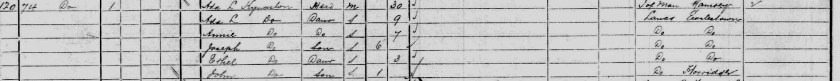 120 74 Do 1 Ada L Kynaston Head M 30 Isle Man Ramsey
Ada L Do Daur S 9 Lancs Earlestown
Annie Do Do S 7 Do Do
Joseph Do Son S 6 Do Do
Ethel Do Daur S 3 Do Do
John Do Son S 1 Do